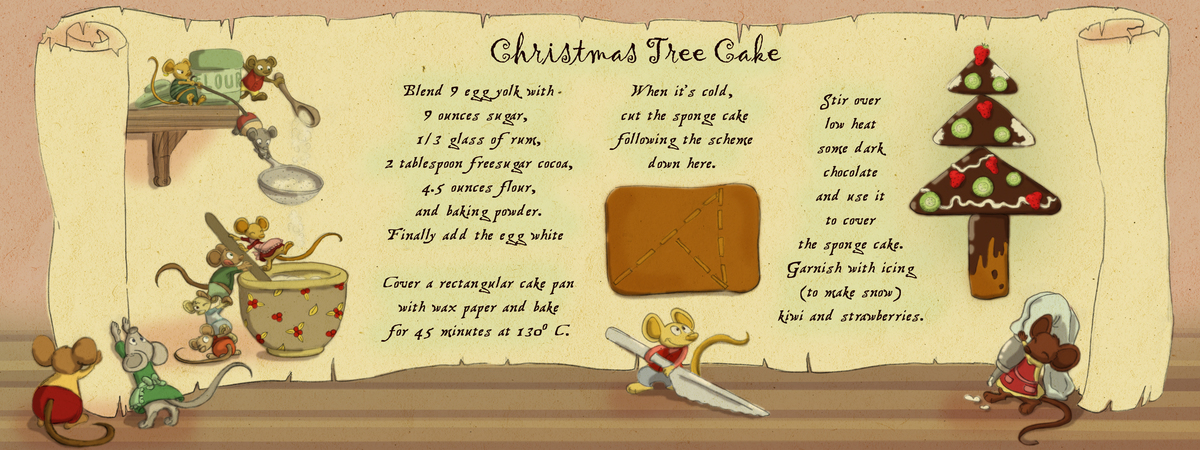 Christmas Tree Cake
FLOUR
Blend 9 egg yolk with-
9 ounces sugar,
1/3 glass of rum,
2 tablespoon freesugar cocoa,
4.5 ounces flour,
and baking powder.
Finally add the egg white
Cover a rectangular cake pan
with wax paper and bake
for 45 minutes at 130° C.
When it's cold,
cut the sponge cake
following the scheme
down here.
Stir over
low heat
some dark
chocolate
and use it
to cover
the sponge cake.
Garnish with icing
(to make snow)
kiwi and strawberries.